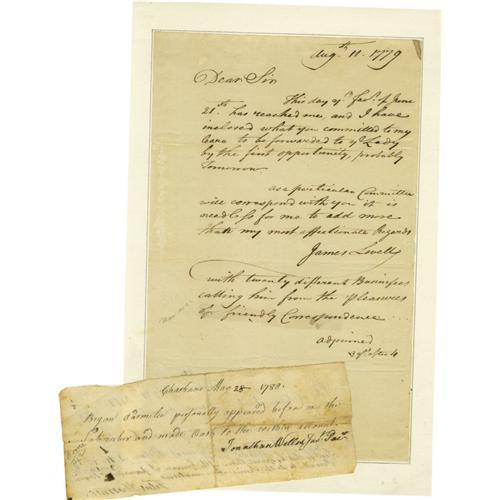 Augth 11. 1779
Dear Sir
This day yr favr. of June
21st. has reached me, and I have
inclosed what you committed to my
Care to be forwarded to yr Lady
by the first opportunity, probably
Tomorrow.
as a particular Committee
will correspond with you it is
needless for me to add more
than my most affectionate Regards
James Lovell
with twenty different Businesses
calling him from the pleasures
of friendly Correspondence...
adjourned
after 4
May 28 - 1780.
Bryan Parmele personally appeared before me the
Subscriber and made Oath to the within account
Jonathan Wells Just. Pace